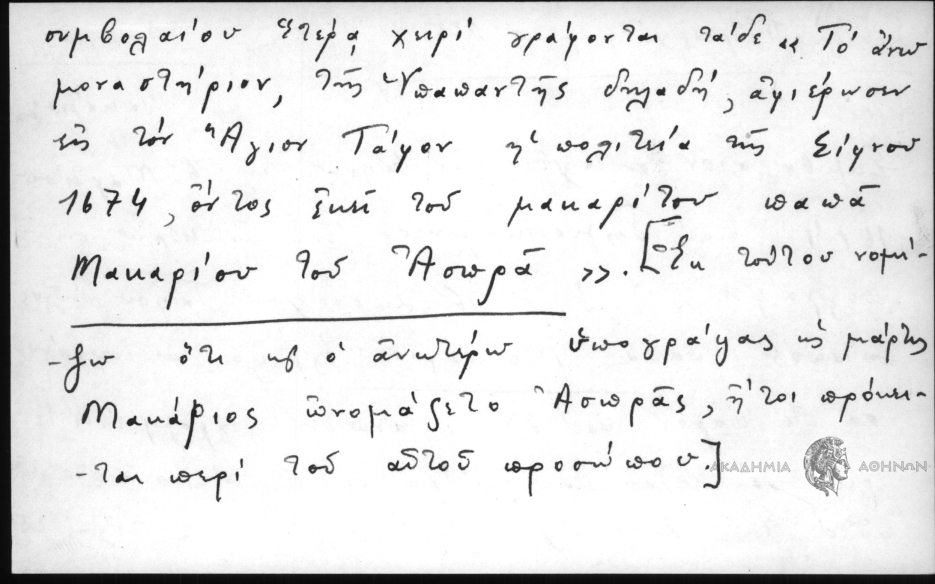 συμβολαίου ἑτέρᾳ χειρί γράφονται τάδε « Τό ἄνω
μοναστήριον, τῆς Ὑπαπαντῆς δηλαδή, ἀφιέρωσεν
εἰς τόν Ἅγιον Τάφον ἡ πολιτεία τῆς Σίφνου
1674, ὄντος ἐκεῖ τοῦ μακαρίτου παπᾶ
Μακαρίου τοῦ Ἀσπρᾶ ». [Ἐκ τούτου νομί-
-ζω ὅτι καί ὁ ἀνωτέρω ὑπογράψας ὡς μάρτυς
Μακάριος ὠνομάζετο Ἀσπρᾶς, ἤτοι πρόκει-
-ται περί τοῦ αὐτοῦ προσώπου.]
ΑΚΑΔΗΜΙΑ ΑΘΗΝΩΝ